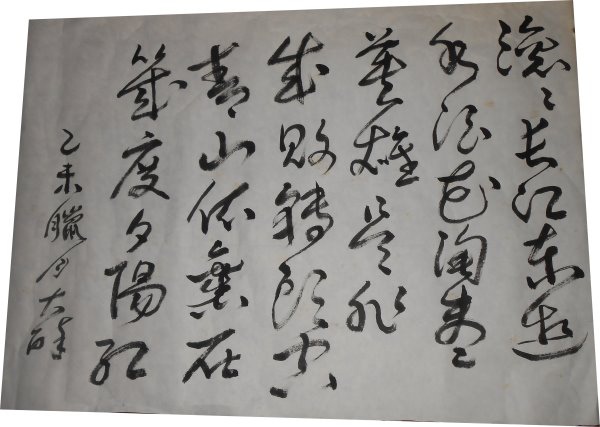 滚〻长江东逝
水浪花淘尽
英雄是非
成败转头空
青山依舊在
幾度夕陽红
乙未臘月大